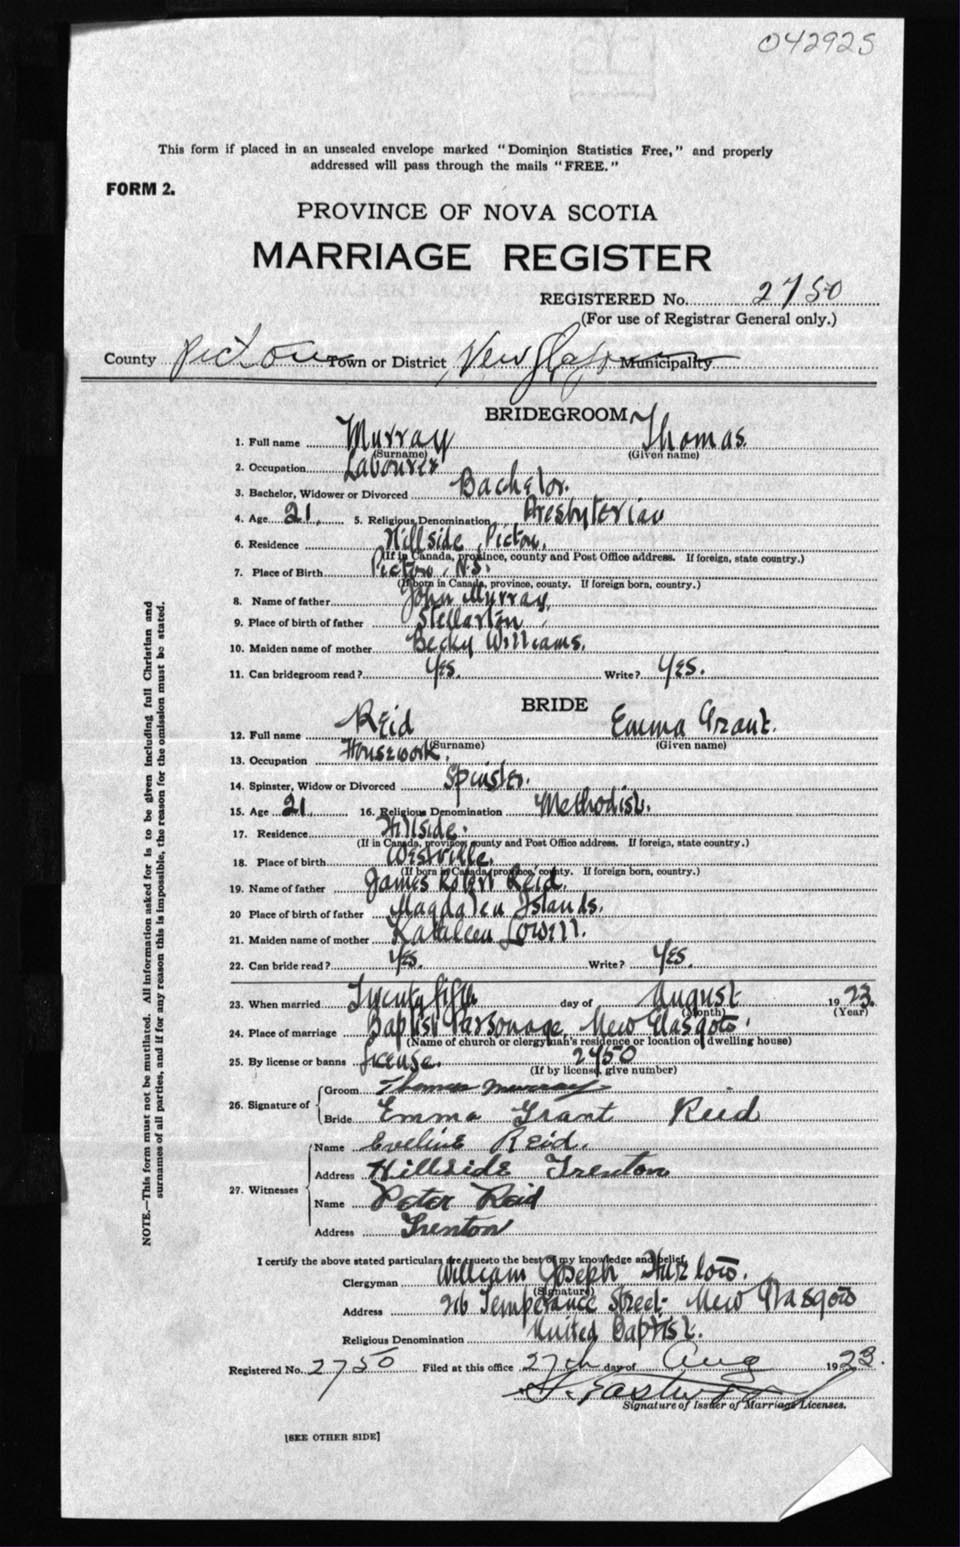 042925
This form if placed in an unsealed envelope marked "Dominion Statistics Free," and properly
addressed will pass through the mails "FREE."
FORM 2.
PROVINCE OF NOVA SCOTIA
MARRIAGE REGISTER
REGISTERED No. 2750
(For use of Registrar General only.)
County Pictou Town or District New Municipality
BRIDEGROOM
1. Full name Murray Thomas
(Surname) (Given name)
2. Occupation Labourer
3. Bachelor, Widower or Divorced Bachelor.
4. Age 21. 5. Religious Denomination Presbyterian
6. Residence Hillside, Pictou.
(If in Canada, province, county and Post Office address. If foreign, state country.)
7. Place of Birth Pictou, N.S.
(If born in Canada, province, county. If foreign born, country.)
8. Name of father John Murray.
9. Place of birth of father Stellarton
10. Maiden name of mother Becky Williams.
11. Can bridegroom read? Yes. Write? Yes.
BRIDE
12. Full name Reid Emma Grant.
(Surname) (Given name)
13. Occupation Housework.
14. Spinster, Widow or Divorced Spinster.
15. Age 21. 16. Religious Denomination Methodist.
17. Residence Hillside.
(If in Canada, province, county and Post Office address. If foreign, state country.)
18. Place of birth Westville.
(If born in Canada, province, county. If foreign born, country.)
19. Name of father James Robert Reid.
20 Place of birth of father Magdalen Islands.
21. Maiden name of mother Kathleen
22. Can bride read? Yes. Write? Yes.
23. When married Twenty fifth day of August 1923.
(Month) (Year)
24. Place of marriage Baptist Parsonage, New Glasgow.
(Name of church or clergyman's residence or location of dwelling house)
25. By license or banns license. 2750
(If by license, give number)
26. Signature of Groom Thomas Murray
Bride Emma Grant Reid
27. Witnesses Name Eveline Reid.
Address Hillside Trenton
Name Peter Reid
Address Trenton
I certify the above stated particulars are true to the best of my knowledge and belief.
Clergyman William Joseph
(Signature)
Address 216 Temperance Street New Glasgow
Religious Denomination United Baptist.
Registered No. 2750 Filed at this office 27th day of Aug 1923.
Signature of Issuer of Marriage Licenses.
[SEE OTHER SIDE]
NOTE.—This form must not be mutilated. All information asked for is to be given including full Christian and
surnames of all parties, and if for any reason this is impossible, the reason for the omission must be stated.